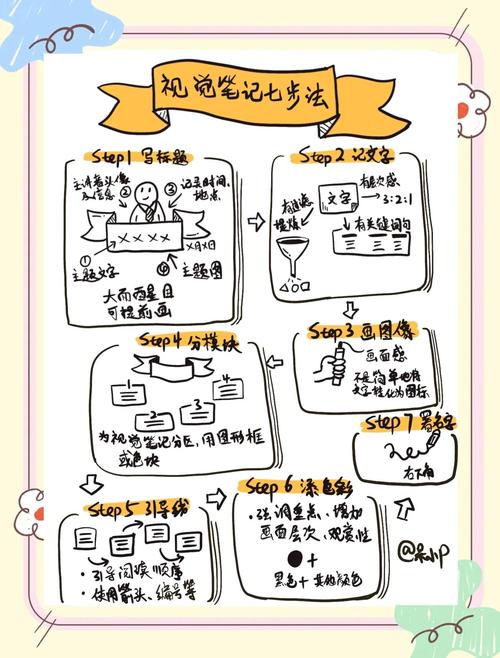 视觉笔记七步法
Step1 写标题
主讲者头像
及信息
②
③
记录时间、
地点
××××
×月×日
①
主题文字
④
主题图
大而醒目
可提前画
Step2 记文字
有过滤
提炼
文字
有层次感
3:2:1
有关键词句
Step3 画图像
画面感
不是简单地将
文字转化为图标
Step4 分模块
1
2
3
4
为视觉笔记分区,用图形框
或色块
Step5 引导线
·引导阅读顺序
·使用箭头、编号等
Step6 添色彩
·强调重点、增加
画面层次、观赏性
+
黑色+其他颜色
Step7 署名字
右下角